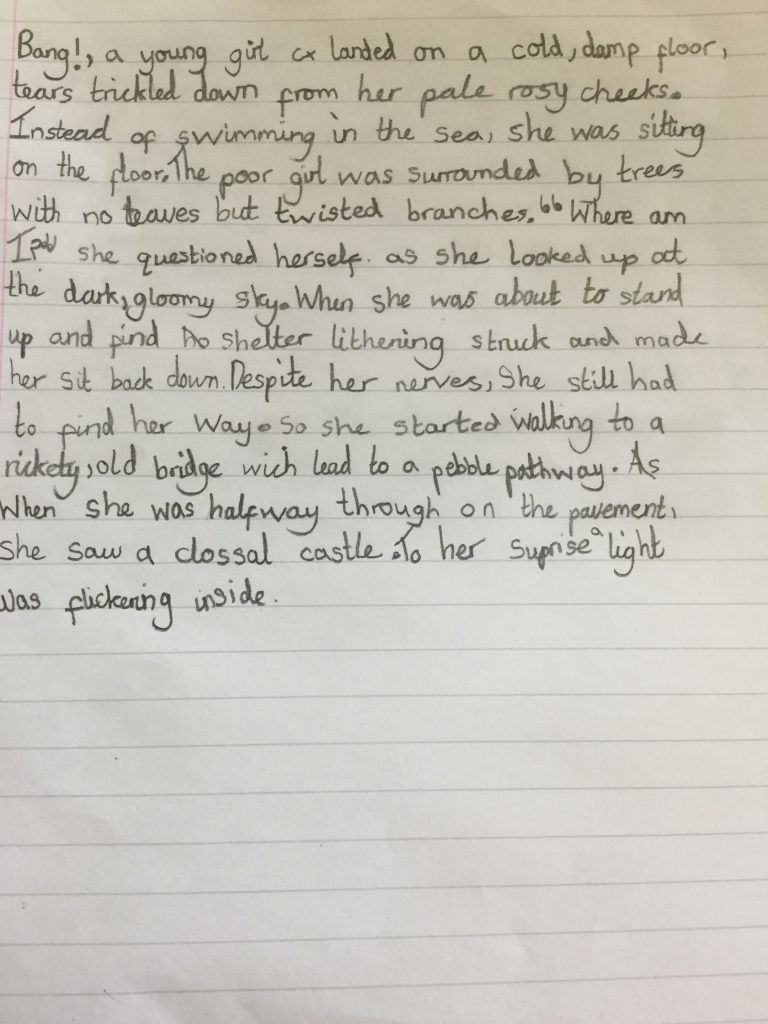 Bang!, a young girl landed on a cold, damp floor,
tears trickled down from her pale rosy cheeks.
Instead of swimming in the sea, she was sitting
on the floor. The poor girl was surrounded by trees
with no leaves but twisted branches. "Where am
I?" she questioned herself. as she looked up at
the dark, gloomy sky. When she was about to stand
up and find shelter lithening struck and made
her sit back down. Despite her nerves, She still had
to find her way. So she started walking to a
rickety, old bridge wich lead to a pebble pathway. As
When she was halfway through on the pavement,
she saw a clossal castle. To her suprise a light
was flickering inside.